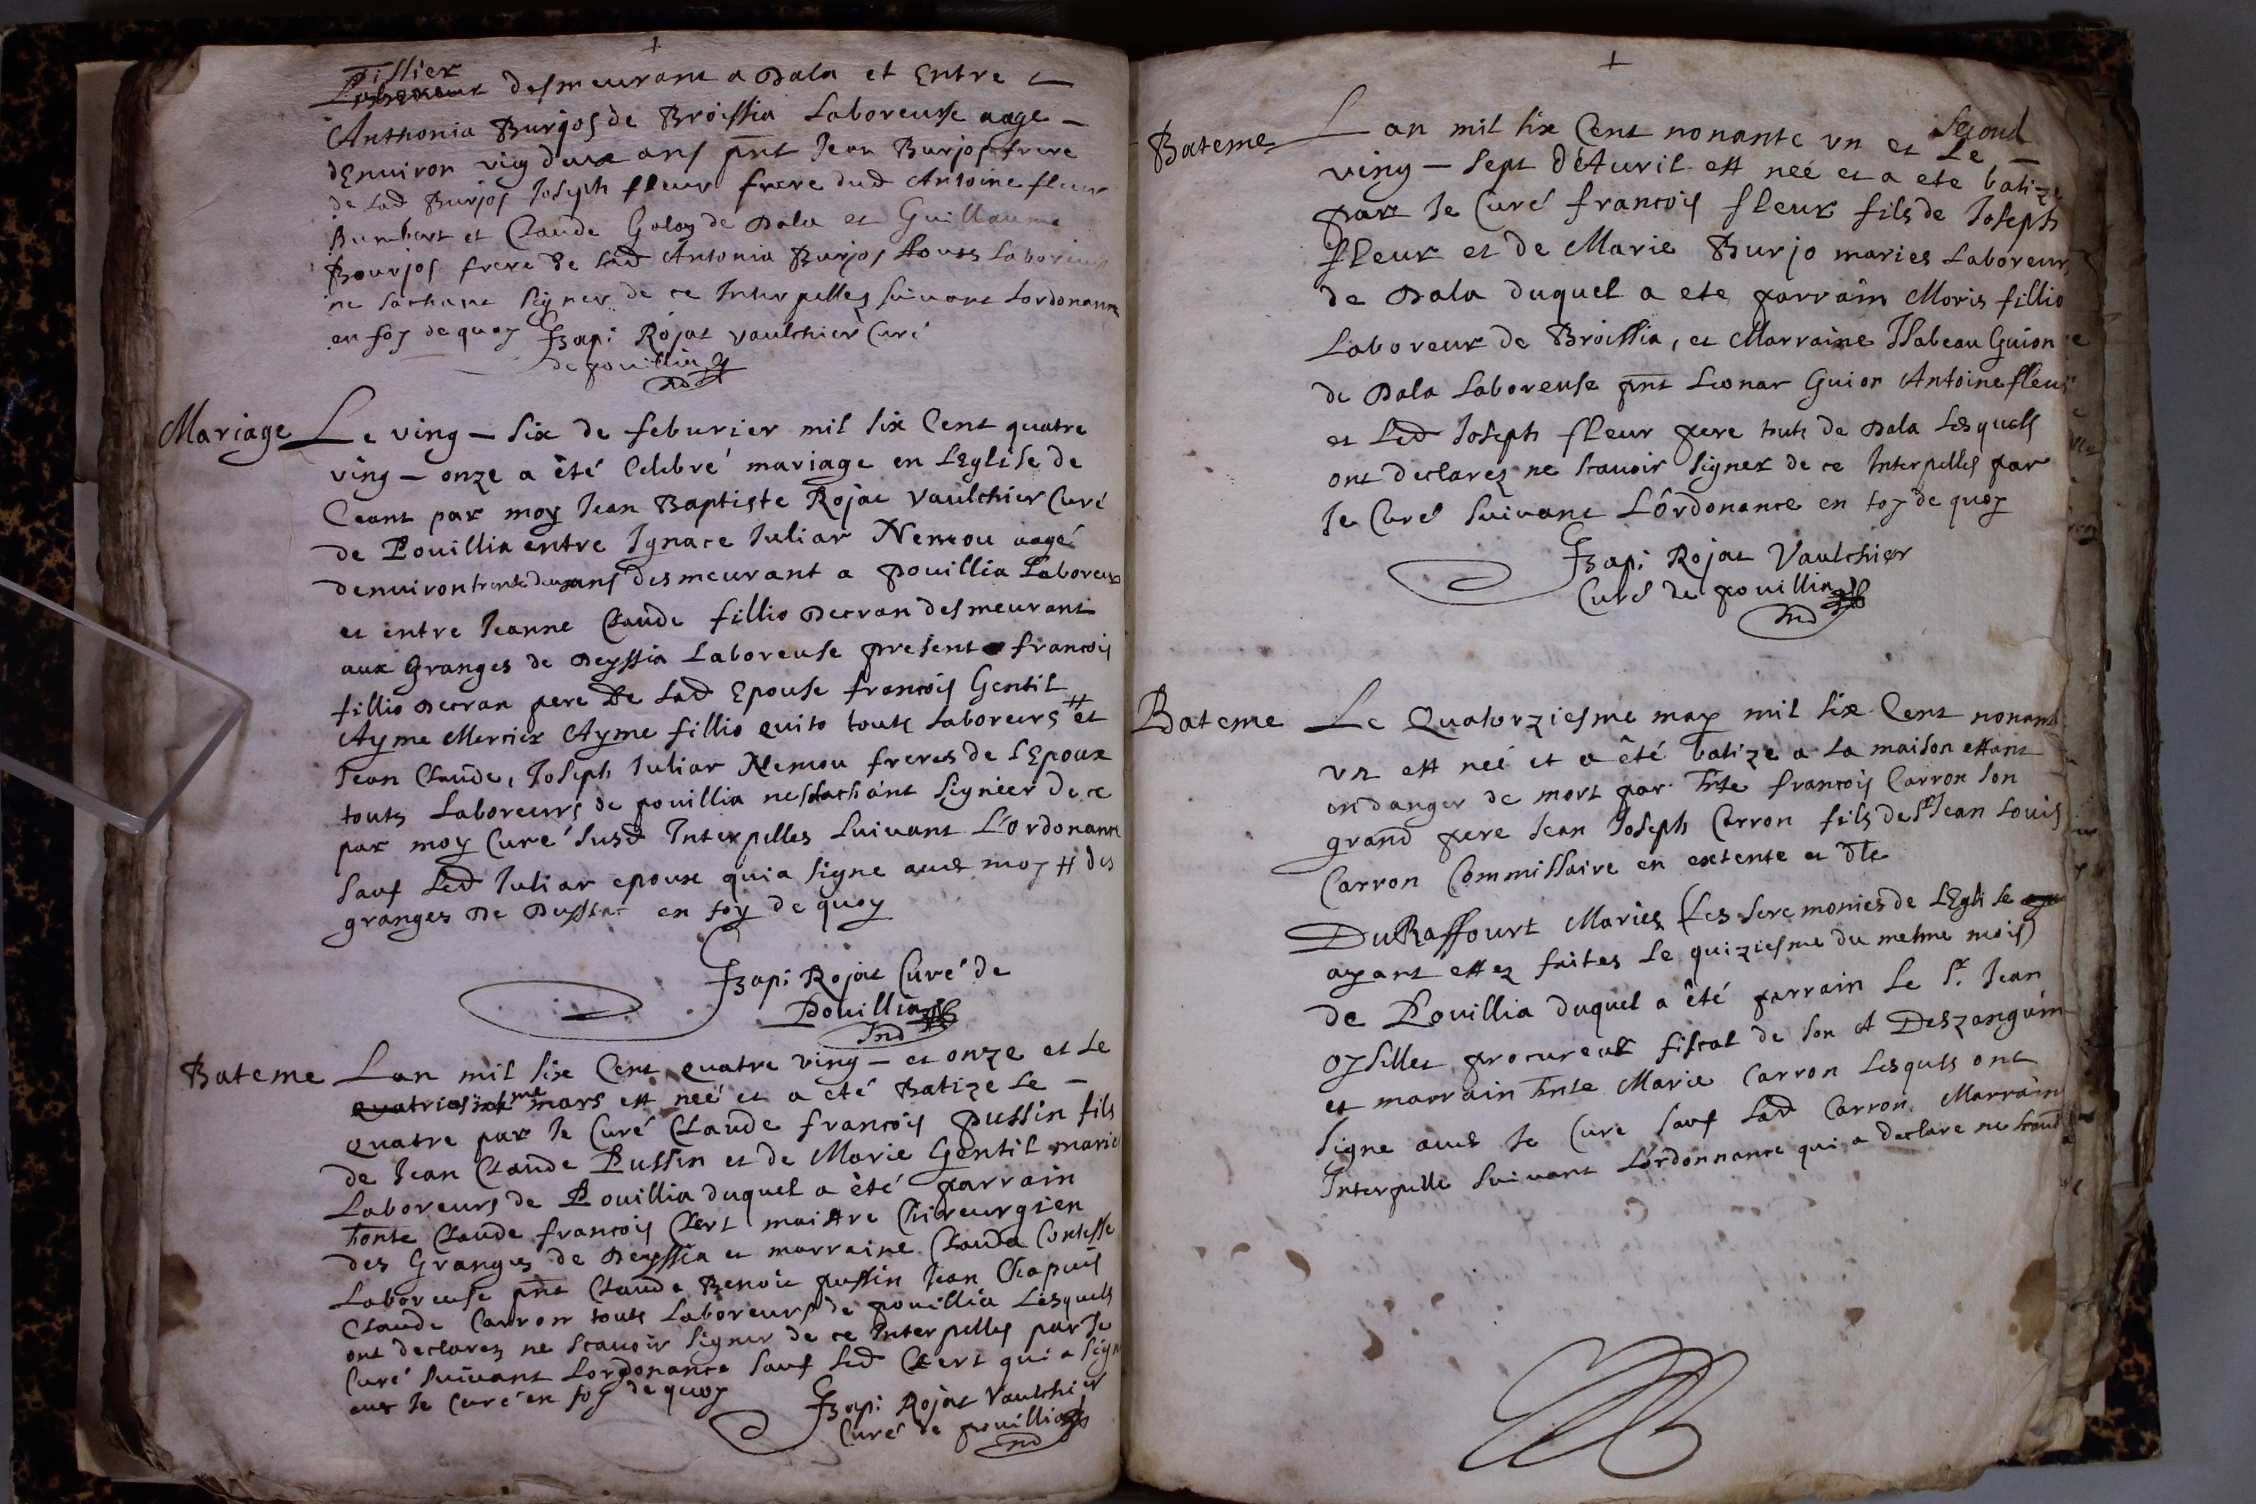 Tissier
desmeurant a Dala et Entre
Anthonia Burjos de Broissia Laboreusse aage
dEnviron ving deux ans pnt Jean Burjos frere
de Lad Burjos Joseph fleur frere dud Antoine fleur
Humbert et Claude Galoy de Dala et Guillaume
Bourjos frere de Lad Antonia Burjos touts Laboreurs
ne sachant signer de ce Interpelles suivant Lordonann
en foy de quoy JBapi Rojat vaulchier Curé
de pouillia
Mariage Le ving – six de feburier mil six Cent quatre
ving – onze a été Celebré mariage en LEglise de
Ceant par moy Jean Baptiste Rojat vaulchier Curé
de Pouillia entre Ignace Juliar Nemou aagé
denviron trente deux ans desmeurant a pouillia Laboreur
et entre Jeanne Claude fillio Decran desmeurant
aux Granges de Deyssia Laboreuse present francois
fillio Decran pere De Lad Epouse francois Gentil
Ayme Mercier Ayme fillio quito touts Laboreurs # et
Jean Claude, Joseph Juliar Nemou freres de LEpoux
touts Laboreurs de pouillia ne sachant signer de ce
par moy Curé susd Interpelles suivant L'Ordonann
sauf Led Juliar epoux qui a signe avec moy # des
granges De Deyssia en foy de quoy
JBapi Rojat Curé de
Pouillia
Bateme Lan mil six Cent quatre ving – et onze et Le
mars est neé et a eté Batize Le –
quatre par Je Curé Claude francois Pussin fils
de Jean Claude Pussin et de Marie Gentil marie
Laboreurs de Pouillia duquel a été parrain
honte Claude francois Clert maistre Chireurgien
des Granges de Deyssia et marraine Clauda Contesse
Laboreuse pnt Claude Benoit pussin Jean Chapuis
Claude Carron touts Laboreurs de pouillia Lesquels
ont declarez ne scavoir signer de ce Interpelles par Je
Curé suivant Lordonance sauf Led Clert qui a sign
avec Je Curé en foy de quoy
JBapi Rojat Vaulchier
Curé de pouillia
Bateme Lan mil six Cent nonante vn et Le second
ving – sept d'Avril est neé et a ete batizé
par Je Curé francois fleur fils de Joseph
fleur et de Marie Burjo maries Laboreurs
de Dala duquel a ete parrain Moris fillio
Laboreur de Broissia, et Marraine Isabeau Guion
de Dala Laboreuse pnt Leonar Guion Antoine fleur
et Led Joseph fleur pere touts de Dala Lesquels
ont declarez ne scavoir signer de ce Interpelles par
Je Curé suivant L'Ordonance en foy de quoy
JBapi Rojat Vaulchier
Curé de pouillia
Bateme Le Quatorziesme may mil six Cent nonant
vn est neé et a été batize a La maison estant
en danger de mort par hnte francois Carron son
grand pere Jean Joseph Carron fils de Sr Jean Louis
Carron Commissaire en extente et dlle
DuRaffourt Maries (Les Seremonies de LEglise
ayant estez faites Le quiziesme du mesme mois)
de Pouillia duquel a été parrain Le Sr Jean
Oysillet procureur fiscal de son A Deszanguin
et marrain hnte Marie Carron Lesquls ont
signe avec Je Curé sauf Lad Carron Marrain
Interpelle suivant L'ordonnance qui a declare ne scavoir